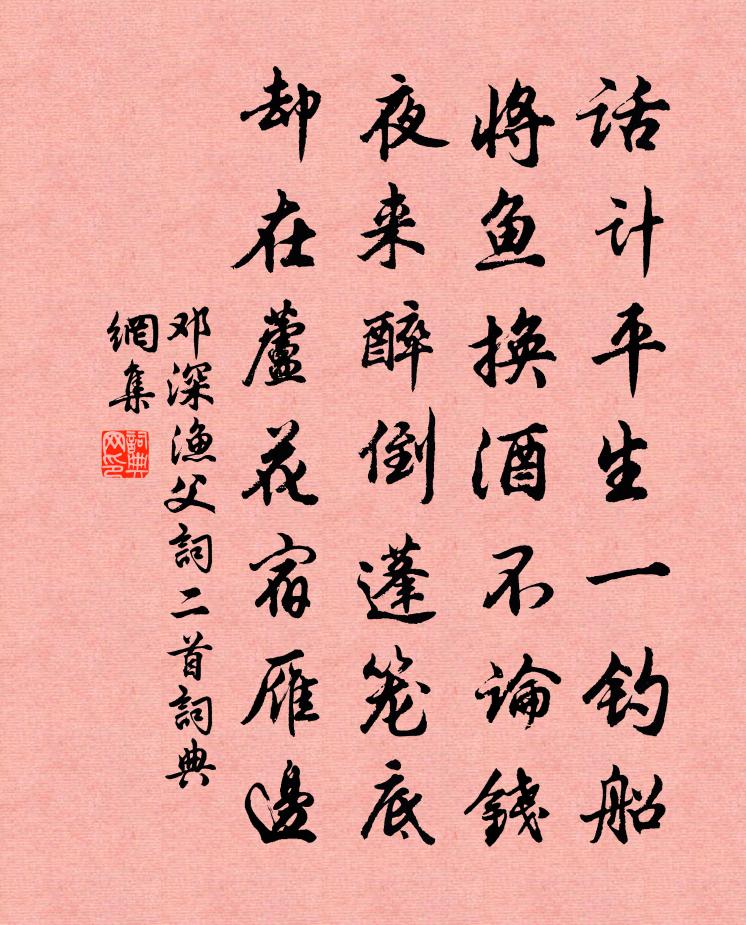 话计平生一钓船
将鱼换酒不論錢
夜来醉倒蓬笼底
却在蘆花宿雁邊
邓深渔父詞二首詞典
網集
詞典
网印